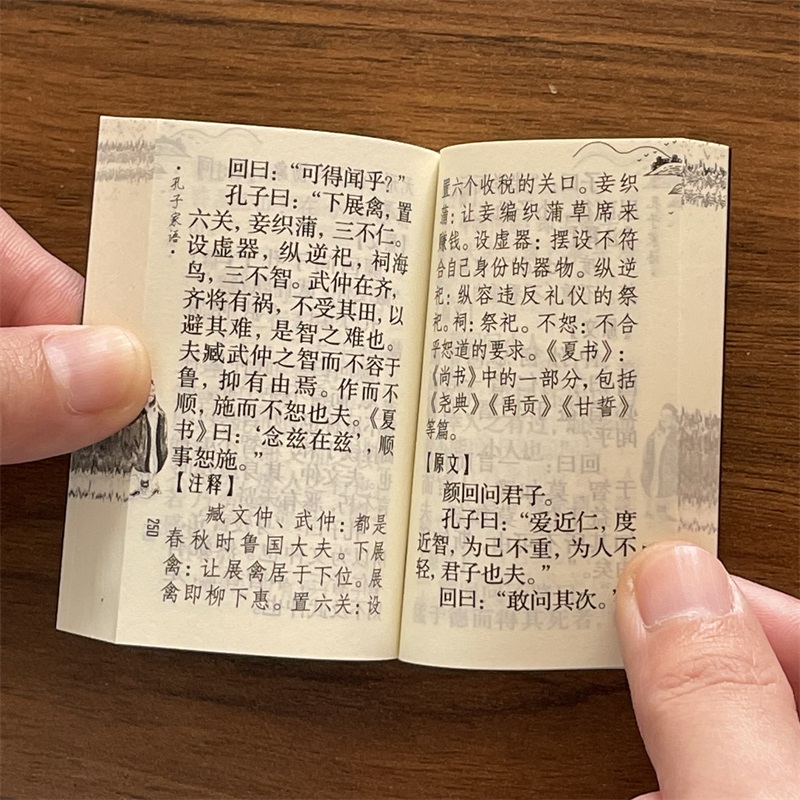 ·孔子家语·
回曰：“可得闻乎？”
孔子曰：“下展禽，置
六关，妾织蒲，三不仁。
设虚器，纵逆祀，祠海
鸟，三不智。武仲在齐，
齐将有祸，不受其田，以
避其难，是智之难也。
夫臧武仲之智而不容于
鲁，抑有由焉。作而不
顺，施而不恕也夫。《夏
书》曰：‘念兹在兹’，顺
事恕施。”
【注释】
臧文仲、武仲：都是
春秋时鲁国大夫。下展
禽：让展禽居于下位。展
禽即柳下惠。置六关：设
250
置六个收税的关口。妾织
蒲：让妾编织蒲草席来
赚钱。设虚器：摆设不符
合自己身份的器物。纵逆
祀：纵容违反礼仪的祭
祀。祠：祭祀。不恕：不合
乎恕道的要求。《夏书》：
《尚书》中的一部分，包括
《尧典》《禹贡》《甘誓》
等篇。
【原文】
颜回问君子。
孔子曰：“爱近仁，度
近智，为己不重，为人不
轻，君子也夫。”
回曰：“敢问其次。”